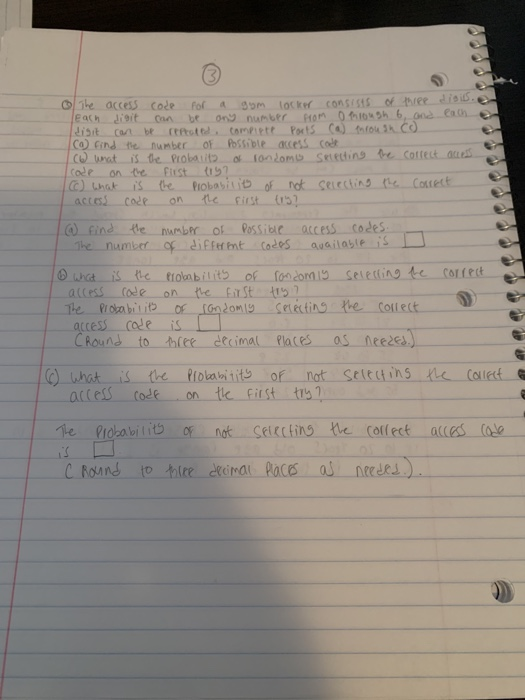 ③
① The access code for a gym locker consists of three digits.
Each digit can be any number from 0 through 6, and each
digit can be repeated. complete Parts (a) through (c)
(a) Find the number of Possible access code
(b) what is the Probability of randomly selecting the correct access
code on the first try?
(c) what is the Probability of not selecting the correct
access code on the first try?
(a) Find the number of Possible access codes.
The number of different codes available is
(b) what is the probability of randomly selecting the correct
access code on the first try?
The Probability of randomly selecting the correct
access code is
(Round to three decimal Places as needed.)
(c) what is the Probability of not selecting the correct
access code on the first try?
The Probability of not selecting the correct access code
is
(Round to three decimal Places as needed.).